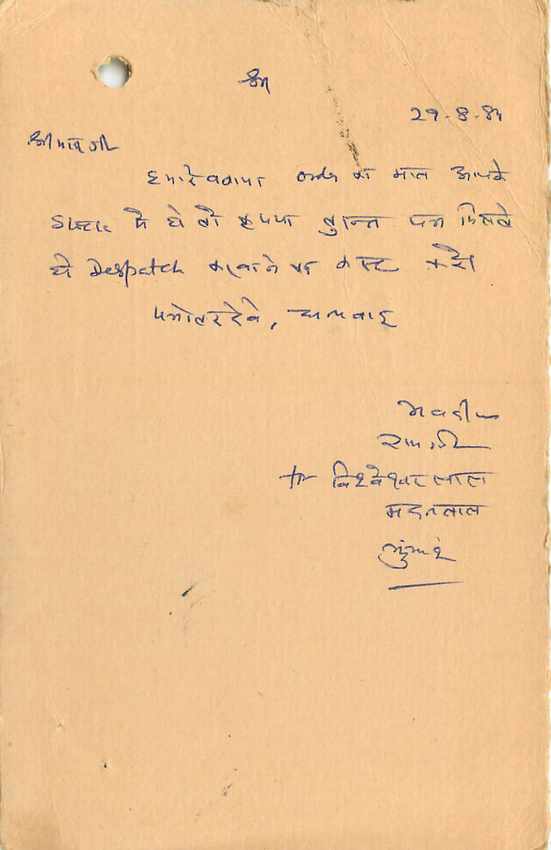 श्री
29-8-84
श्रीमान जी
हमारे बकाया order का माल आपके
Stock में हो तो कृपया तुरन्त पत्र मिलते
ही Despatch करवाने का कष्ट करें
पत्रोत्तर देवे, धन्यवाद
भवदीय
विश्वेश्वरलाल
मदनलाल
मुंबई